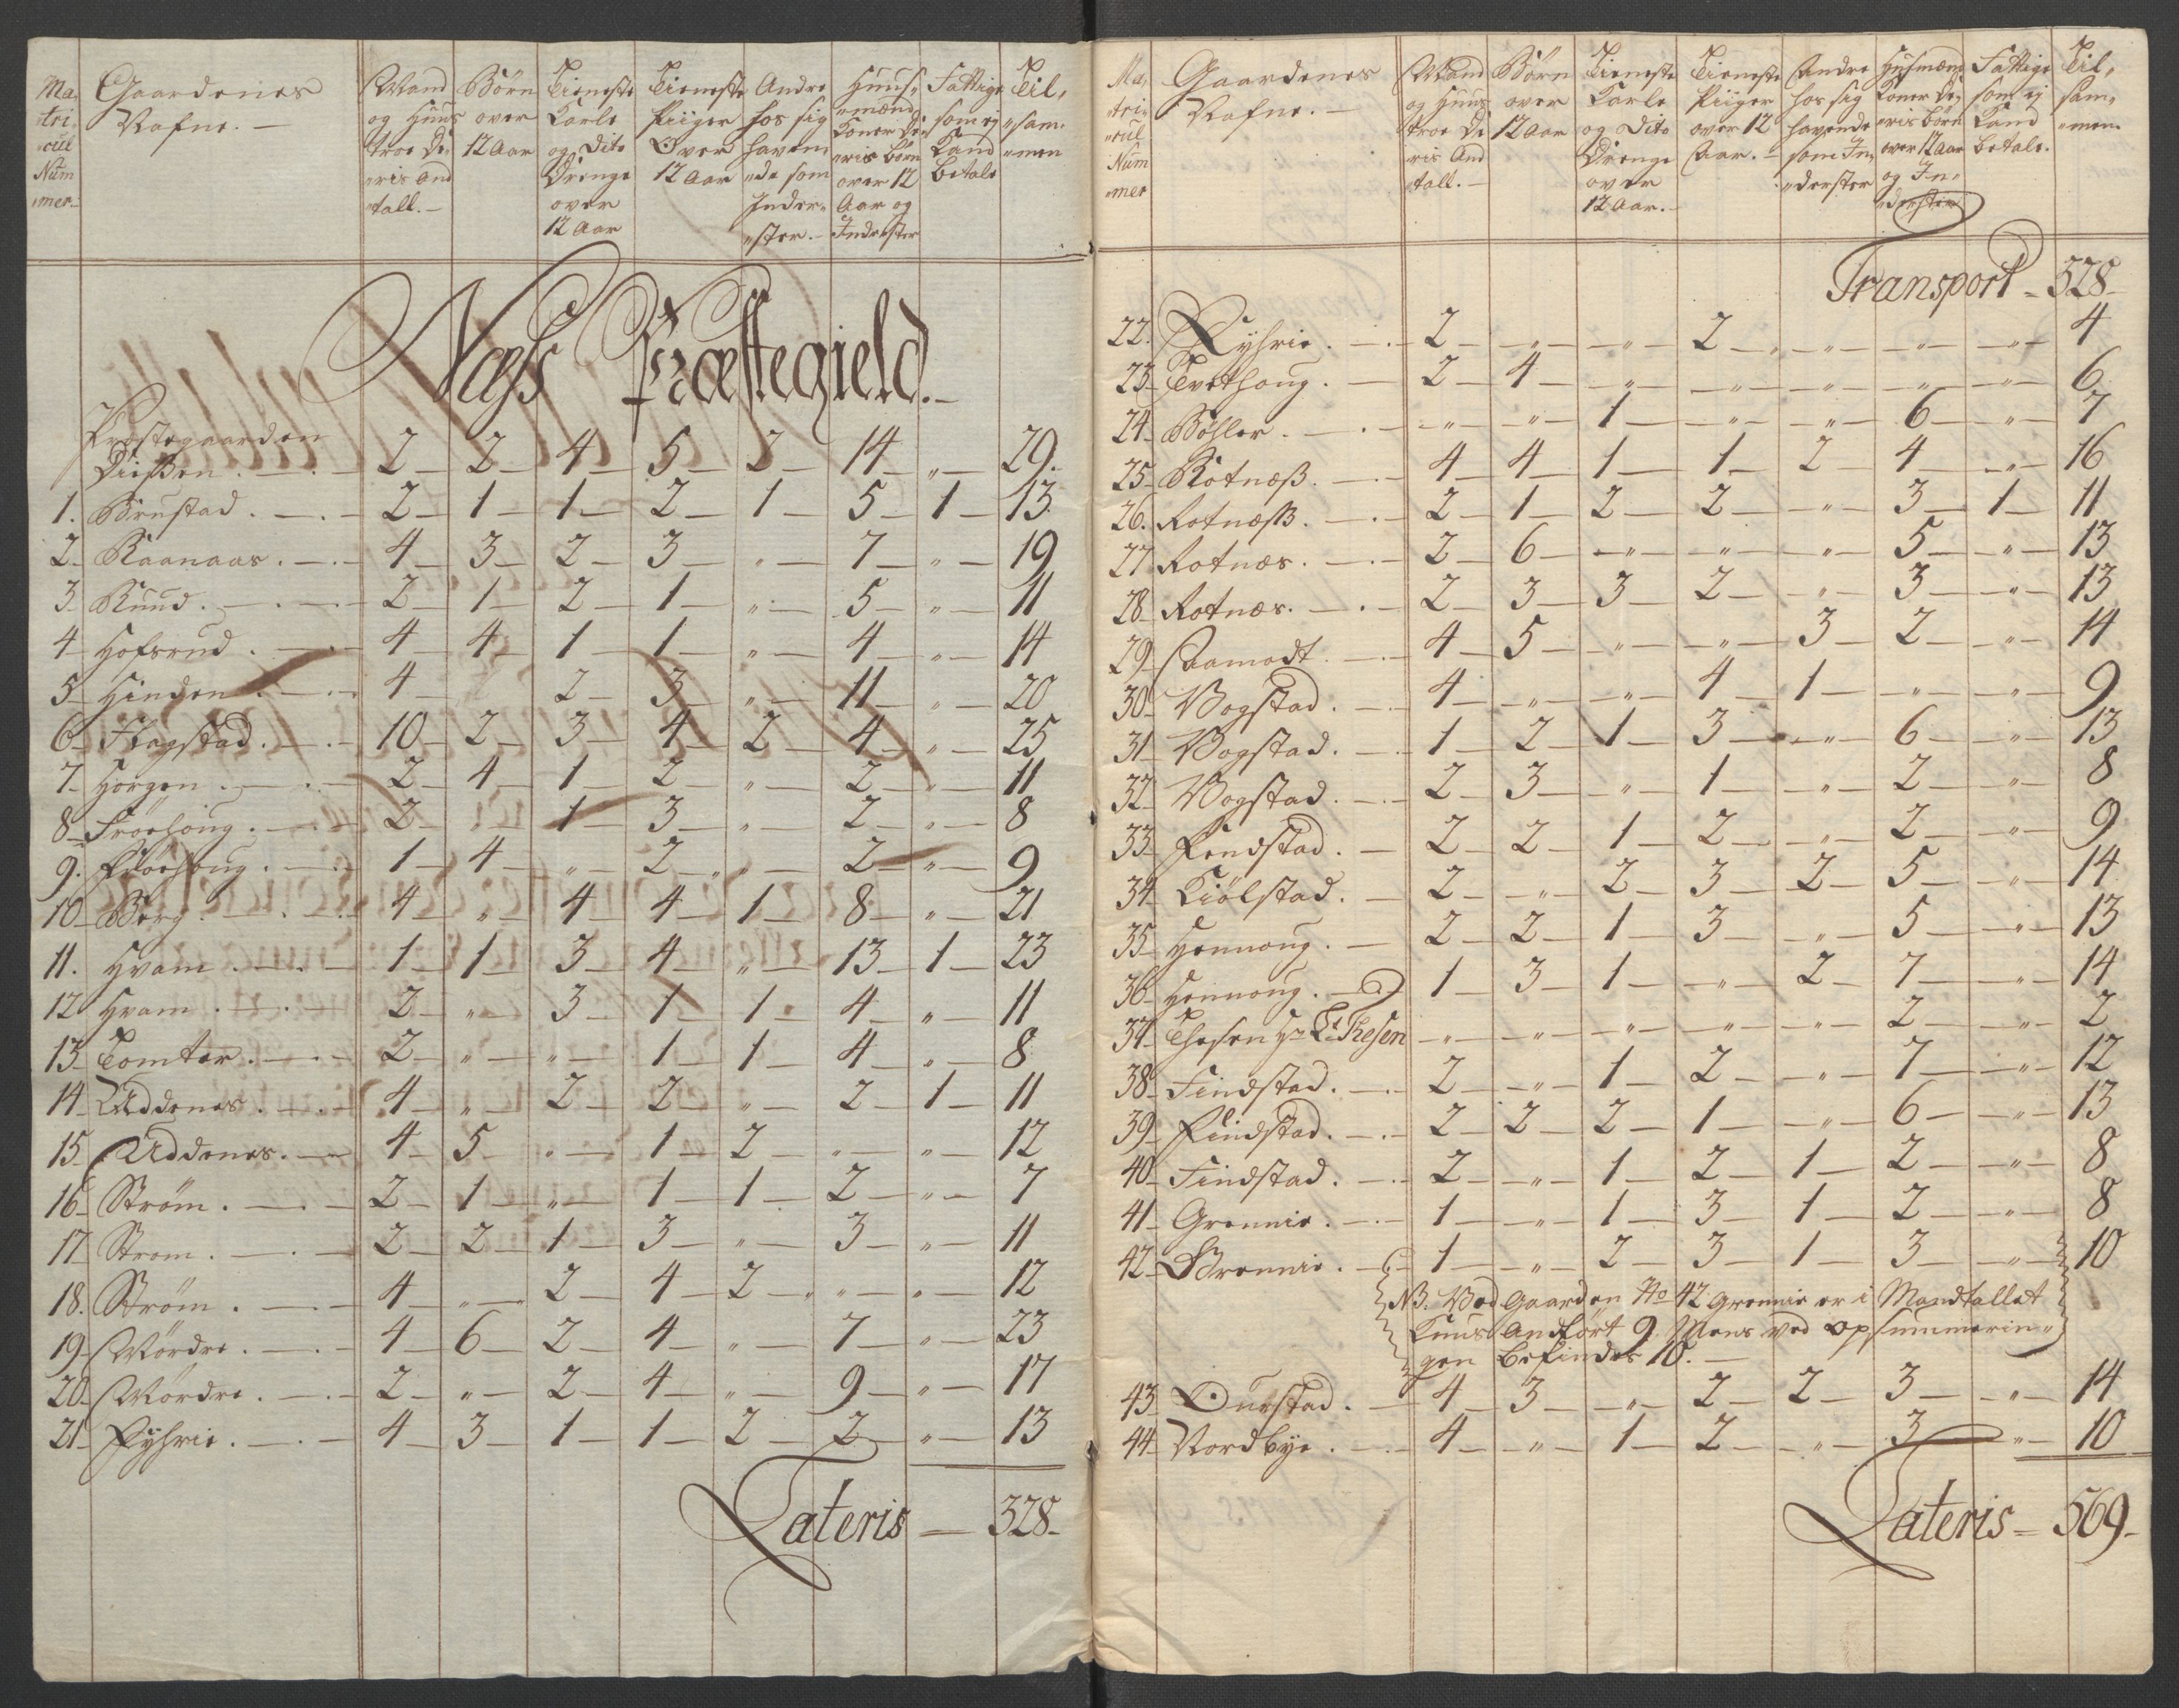 Ma,
"tri,
"cul
Num
"mer
Gaardenes
Nafne. —
Mand
og Huus
troe De
"ris And
"tall. —
Børn
over
12 Aar
Tieneste
Karle
og Dito
Drenge
over
12 Aar
Tieneste
Piiger
Over
12 Aar
Andre
hos sig
havem
"de som
Inder,
"ster. —
Huus,
"mænd
Koner De
"ris børn
over 12
Aar og
Inderster
Fattige
som ej
Kand
betale
Til,
"sam,
"men
Næss Præstegield. —
Præstegaarden
Diissen . — 2 — 2 — 4 — 5 — 2 — 14 — " — 29.
1. Brustad . — 2 — 1 — 1 — 2 — 1 — 5 — 1 — 13.
2 — Kaanaas . — 4 — 3 — 2 — 3 — " — 7 — " — 19
3 — Ruud . — 2 — 1 — 2 — 1 — " — 5 — " — 11
4 — Hofsrud . — 4 — 4 — 1 — 1 — " — 4 — " — 14
5 — Hinden . — 4 — 2 — 3 — " — 11 — " — 20
6 — Hagstad . — 10 — 2 — 3 — 4 — 2 — 4 — " — 25
7 — Horgen . — 2 — 4 — 1 — 2 — " — 2 — " — 11
8 — Frøehoug . — 2 — " — 1 — 3 — " — 2 — " — 8
9. Frøehoug . — 1 — 4 — " — 2 — " — 2 — " — 9
10 — Berg . — 4 — " — 4 — 4 — 1 — 8 — " — 21
11. Hvam . — 1 — 1 — 3 — 4 — " — 13 — 1 — 23
12 Hvam . — 2 — " — 3 — 1 — 1 — 4 — " — 11
13 — Tomter . — 2 — " — " — 1 — 1 — 4 — " — 8
14 — Uddenes . — 4 — " — 2 — 2 — " — 2 — 1 — 11
15 — Uddenes . — 4 — 5 — " — 1 — 2 — " — " — 12
16 — Strøm . — 2 — 1 — " — 1 — 1 — 2 — " — 7
17 — Strøm . — 2 — 2 — 1 — 3 — " — 3 — " — 11
18. Strøm . — 4 — " — 2 — 4 — 2 — " — " — 12
19 — Mørdre . — 4 — 6 — 2 — 4 — " — 7 — " — 23
20 — Mørdre . — 2 — " — 2 — 4 — " — 9 — " — 17
21 — Fyhrie . — 4 — 3 — 1 — 1 — 2 — 2 — " — 13
Lateris — 328 —
Ma,
"tri,
"cul
Num
"mer
Gaardenes
Nafne. —
Mand
og Huus
troe De
"ris And
"tall. —
Børn
over
12 Aar
Tieneste
Karle
og Dito
Drenge
over
12 Aar. —
Tieneste
Piiger
over 12
Aar. —
Andre
hos sig
havende
som In,
"derster
Huusmænd
Koner De,
"ris børn
over 12 Aar
og In,
"derster
Fattige
som ej
Kand
betale.
Til,
sam,
"men
Transport — 328 —
22. Fyhrie . — 2 — " — " — 2 — " — " — " — 4
23 — Tvethoug . — 2 — 4 — " — " — " — " — " — 6
24 — Bøhler . — " — " — 1 — " — " — 6 — " — 7
25 — Rotnæss . — 4 — 4 — 1 — 1 — 2 — 4 — " — 16
26. Rotnæss . — 2 — 1 — 2 — 2 — " — 3 — 1 — 11
27 Rotnæs . — 2 — 6 — " — " — " — 5 — " — 13
28 — Rotnæs . — 2 — 3 — 3 — 2 — " — 3 — " — 13
29 — Aamodt . — 4 — 5 — " — " — 3 — 2 — " — 14
30 — Vogstad . — 4 — " — " — 4 — 1 — " — " — 9
31 — Vogstad . — 1 — 2 — 1 — 3 — " — 6 — " — 13
32 — Vogstad . — 2 — 3 — " — 1 — " — 2 — " — 8
33 — Fendstad . — 2 — 2 — 1 — 2 — " — 2 — " — 9
34 — Kiølstad . — 2 — " — 2 — 3 — 2 — 5 — " — 14
35 — Hennoug . — 2 — 2 — 1 — 3 — " — 5 — " — 13
36 — Hennoug . — 1 — 3 — 1 — " — 2 — 7 — " — 14
37 — Thesen Hr Lt Thesen — " — " — " — " — " — 2 — " — 2
38 — Findstad . — 2 — " — 1 — 2 — " — 7 — " — 12
39 — Findstad . — 2 — 2 — 2 — 1 — " — 6 — " — 13
40 — Findstad . — 2 — " — 1 — 2 — 1 — 2 — " — 8
41 — Grønnie . — 1 — " — 1 — 3 — 1 — 2 — " — 8
42 — Grønnie . — 1 — " — 2 — 3 — 1 — 3 — " — 10
NB. Ved Gaarden No 42 Grønnie er i Mandtallet
Kuns Anført 9. Mens ved opsummerin,
gen befindes 10. —
43 — Ourstad . — 4 — 3 — " — 2 — 2 — 3 — " — 14
44 — Nordbye . — 4 — " — 1 — 2 — " — 3 — " — 10
Lateris — 569 —